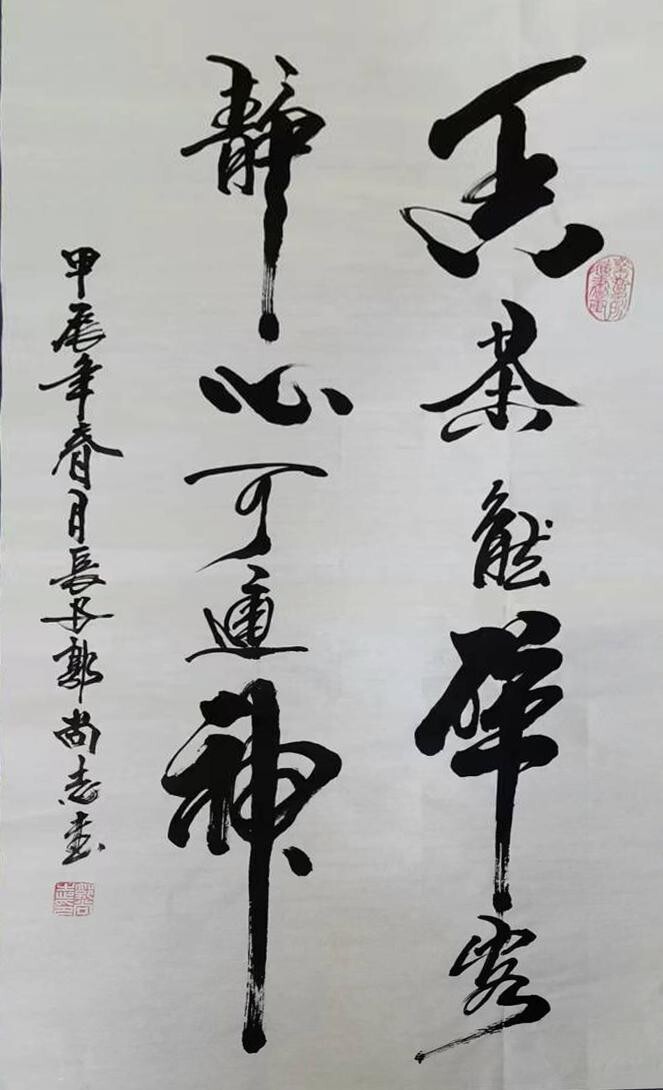 真茶能醉客
静心可通神
甲辰年春月長子郭尚志書